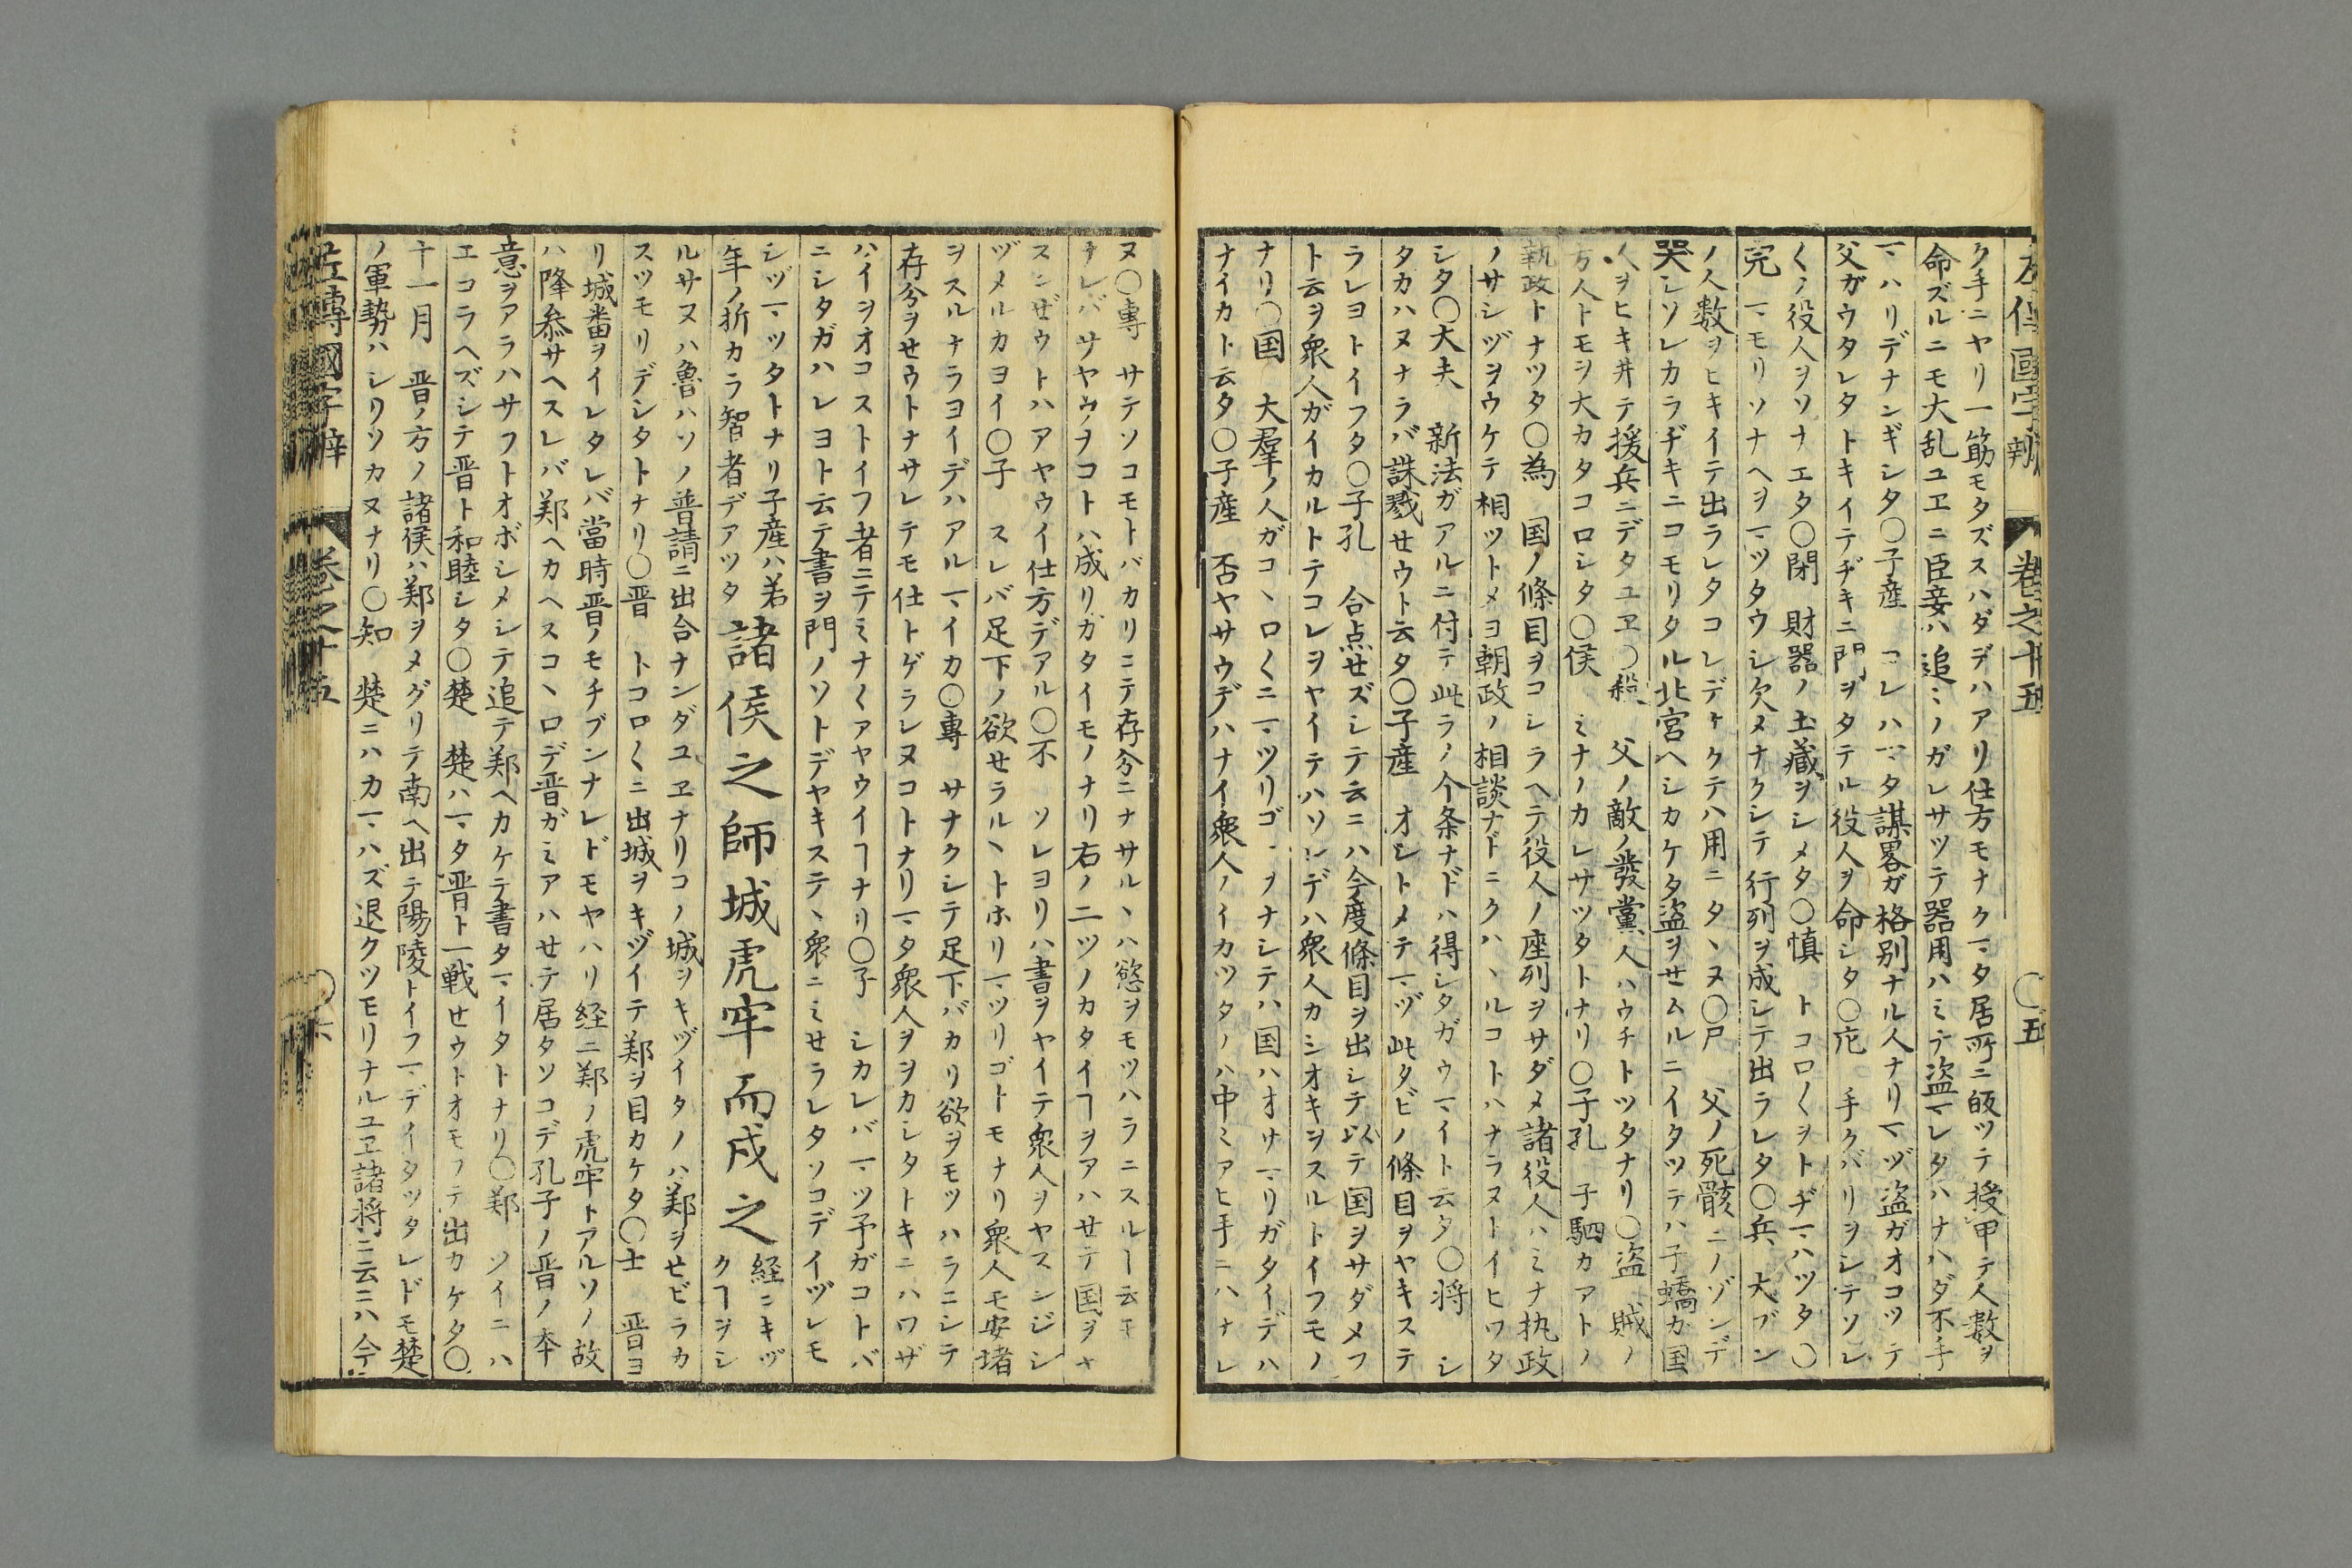 左傳國字辨 巻之十五 〇五
ク手ニヤリ一筋モタズスハダデハアリ仕方モナクマタ居所ニ皈ツテ授甲テ人数ヲ
命ズルニモ大乱ユヱニ臣妾ハ追〻ノガレサツテ器用ハミテ盗マレタハナハダ不手
マハリデナンギシタ〇子産 コレハマタ謀畧ガ格別ナル人ナリマヅ盗ガオコツテ
父ガウタレタトキイテヂキニ門ヲタテル役人ヲ命シタ〇庀 手クバリヲシテソレ
〱ノ役人ヲソナエタ〇閉 財器ノ土藏ヲシメタ〇慎 トコロ〱ヲトヂマハツタ〇
完 マモリソナヘヲマツタウシ欠メナクシテ行列ヲ成シテ出ラレタ〇兵 大ブン
ノ人数ヲヒキイテ出ラレタコレデナクテハ用ニタヽヌ〇尸 父ノ死骸ニノゾンデ
哭シソレカラヂキニコモリタル北宮ヘシカケタ盗ヲせムルニイタツテハ子蟜カ国
人ヲヒキ井テ援兵ニデタユヱ〇殺 父ノ敵ノ發黨人ハウチトツタナリ〇盗 賊ノ
方人トモヲ大カタコロシタ〇侯 ミナノカレサツタトナリ〇子孔 子駟カアトノ
執政トナツタ〇為 国ノ條目ヲコシラヘテ役人ノ座列ヲサダメ諸役人ハミナ执政
ノサシヅヲウケテ相ツトメヨ朝政ノ相談ナドニクハヽルコトハナラヌトイヒワタ
シタ〇大夫 新法ガアルニ付テ此ラノ个条ナドハ得シタガウマイト云タ〇将 シ
タカハヌナラバ誅戮せウト云タ〇子産 オシトメテマヅ此タビノ條目ヲヤキステ
ラレヨトイフタ〇子孔 合点せズシテ云ニハ今度條目ヲ出シテ以テ国ヲサダメフ
ト云ヲ衆人ガイカルトテコレヲヤイテハソレデハ衆人カシオキヲスルトイフモノ
ナリ〇国 大羣ノ人ガコヽロ〱ニマツリゴヲナシテハ国ハオサマリガタイデハ
ナイカト云タ〇子産 否ヤサウデハナイ衆人ノイカツタノハ中〻アヒ手ニハナレ
ヌ〇專 サテソコモトバカリニテ存分ニナサルヽハ慾ヲモツハラニスルト云モ
ナレバサヤウノコトハ成リガタイモノナリ右ノ二ツノカタイヿヲアハせテ国ヲヤ
スンぜウトハアヤウイ仕方デアル〇不 ソレヨリハ書ヲヤイテ衆人ヲヤスンジシ
ヅメルカヨイ〇子 スレバ足下ノ欲せラルヽトホリマツリゴトモナリ衆人モ安堵
ヲスルナラヨイデハアルマイカ〇專 サナクシテ足下バカリ欲ヲモツハラニシテ
存分ヲせウトナサレテモ仕トゲラレヌコトナリマタ衆人ヲヲカシタトキニハワザ
ハイヲオコストイフ者ニテミナ〱アヤウイヿナリ〇子 シカレバマツ予ガコトバ
ニシタガハレヨト云テ書ヲ門ノソトデヤキステヽ衆ニミせラレタソコデイヅレモ
シヅマツタトナリ子産ハ若
年ノ折カラ智者デアツタ 諸侯之師城虎牢而戍之 経ニキヅ
クヿヲシ
ルサヌハ魯ハソノ普請ニ出合ナンダユヱナリコノ城ヲキヅイタノハ郑ヲせビラカ
スツモリデンタトナリ〇晋 トコロ〱ニ出城ヲキヅイテ郑ヲ目カケタ〇士 晋ヨ
リ城番ヲイレタレバ當時晋ノモチブンナレドモヤハリ経ニ郑ノ虎牢トアルソノ故
ハ降叅サヘスレバ郑ヘカヘスコヽロデ晋ガミアハせテ居タソコデ孔子ノ晋ノ本
意ヲアラハサフトオボシメシテ追テ郑ヘカケテ書タマイタトナリ〇郑 ソイニハ
エコラヘズシテ晋ト和睦シタ〇楚 楚ハマタ晋ト一戦せウトオモフテ出カケタ〇
十一月 晋ノ方ノ諸侯ハ郑ヲメグリテ南ヘ出テ陽陵トイフマデイタツタレドモ楚
ノ軍勢ハシリソカヌナリ〇知 楚ニハカマハズ退クツモリナルユヱ諸将ニ云ニハ今
左傳國字辨 巻之十五 〇六